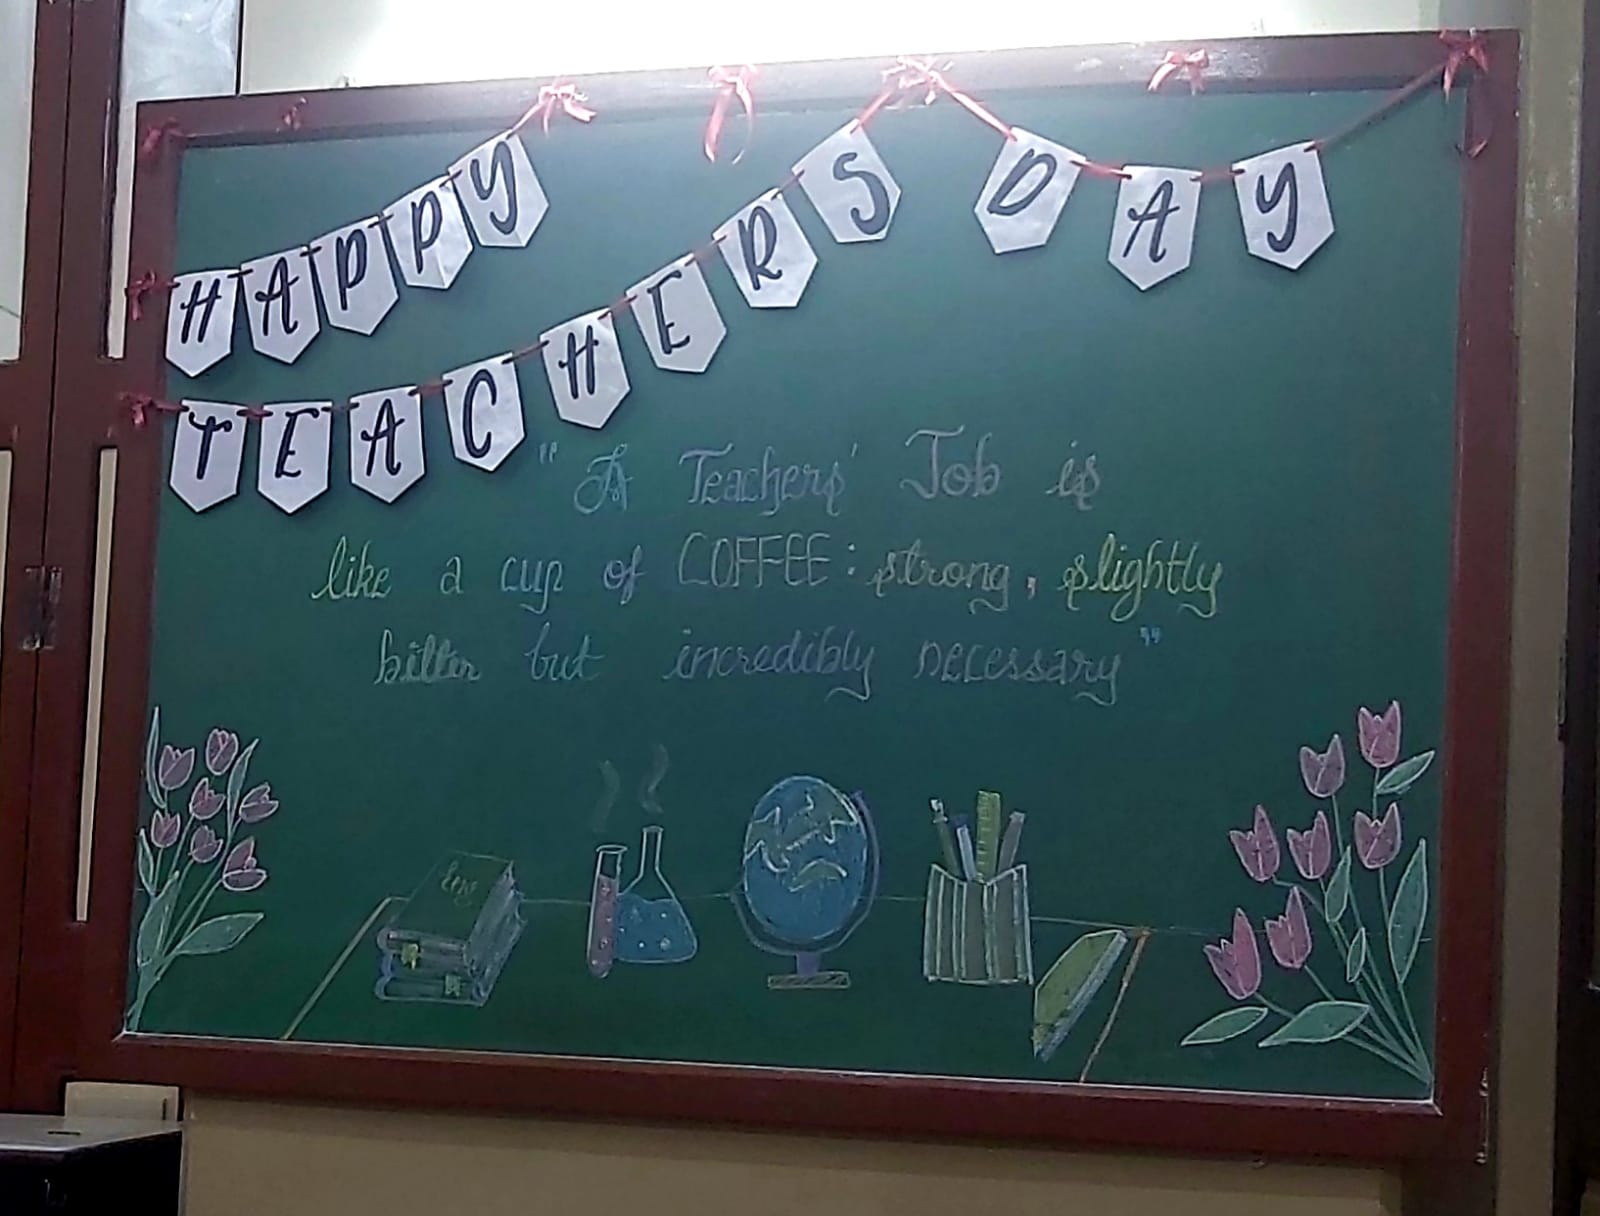 HAPPY
TEACHERS DAY
"A Teachers' Job is
like a cup of COFFEE: strong, slightly
bitter but incredibly necessary"
Eng